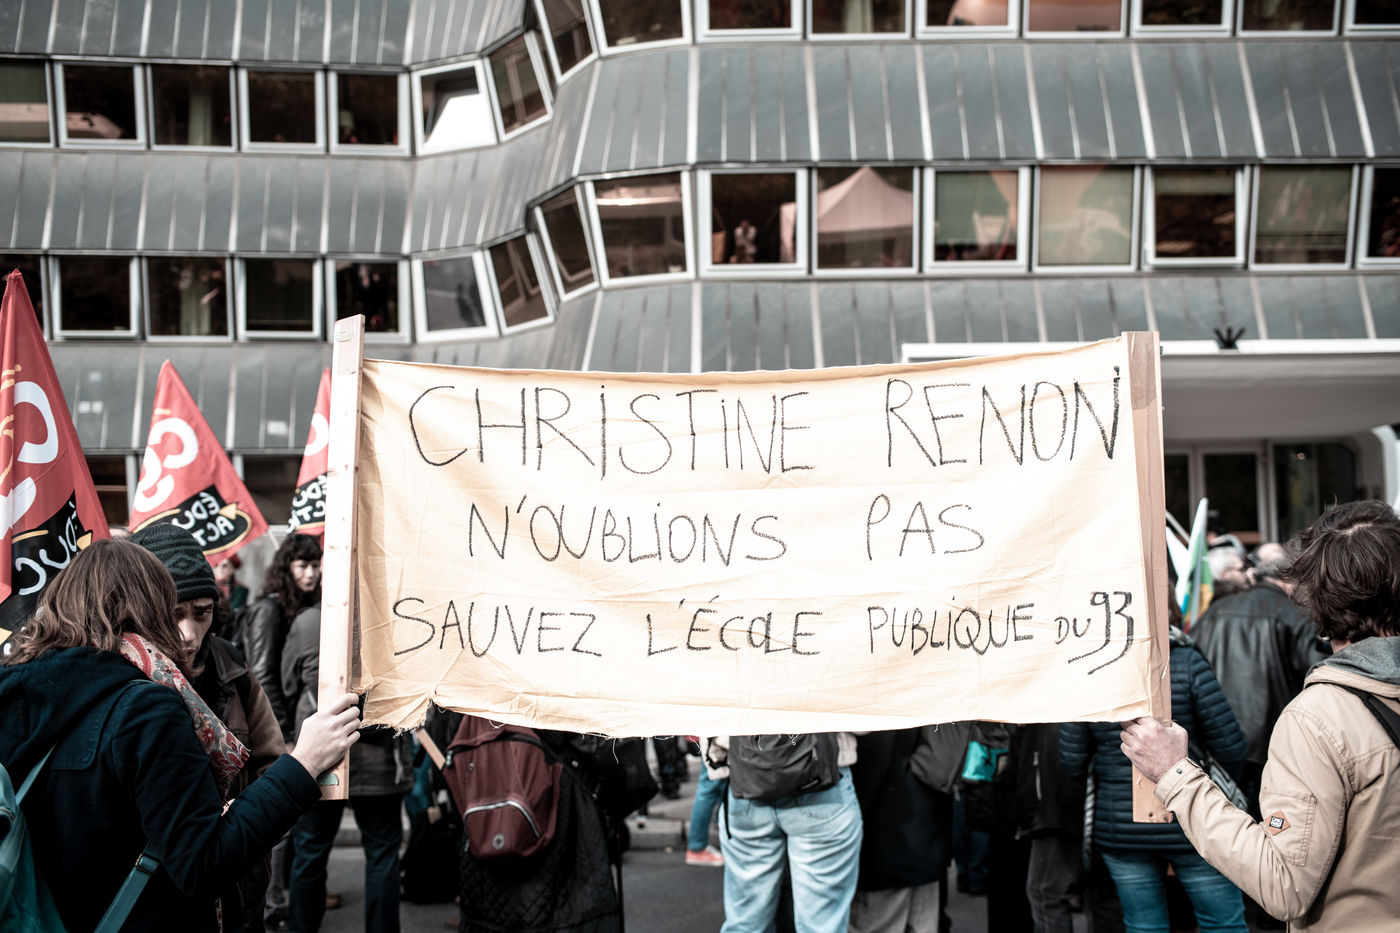 CHRISTINE RENON
N'OUBLIONS PAS
SAUVEZ L'ÉCOLE PUBLIQUE DU 93
ÉDUC
ACT
ÉDUC